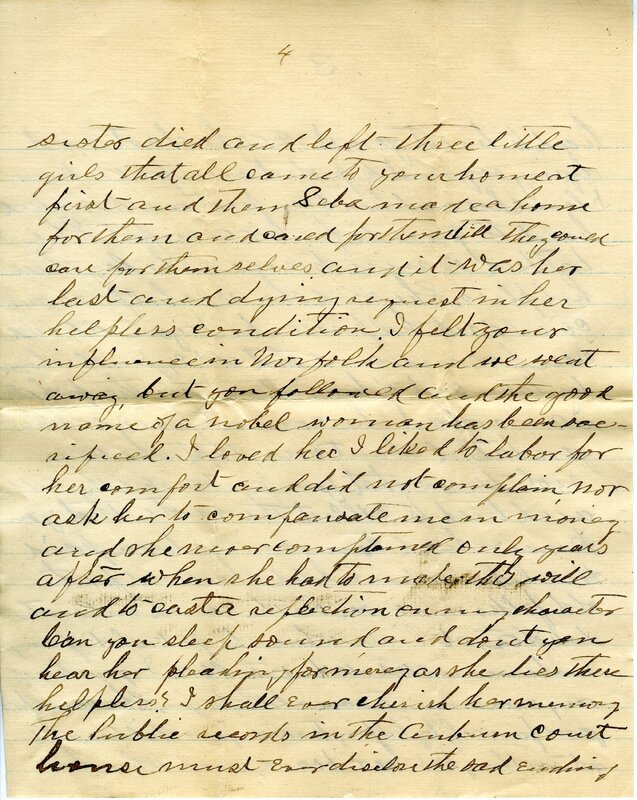 4
sister died and left three little
girls that all came to your home at
first and then Seba made a home
for them and cared for them till they could
care for themselves and it was her
last and dying request in her
helpless condition. I felt your
influence in Norfolk and we went
away but you followed and the good
name of a nobel woman has been sac-
rificed. I loved her I liked to labor for
her comfort and did not complain nor
ask her to compensate me in money
and she never complained only years
after when she had to make this will
and to cast a reflection on my character
Can you sleep sound and dont you
hear her pleading for mercy as she lies there
helpless? I shall ever cherish her memory
The Public records in the Auburn court
house must ever disclose the sad ending